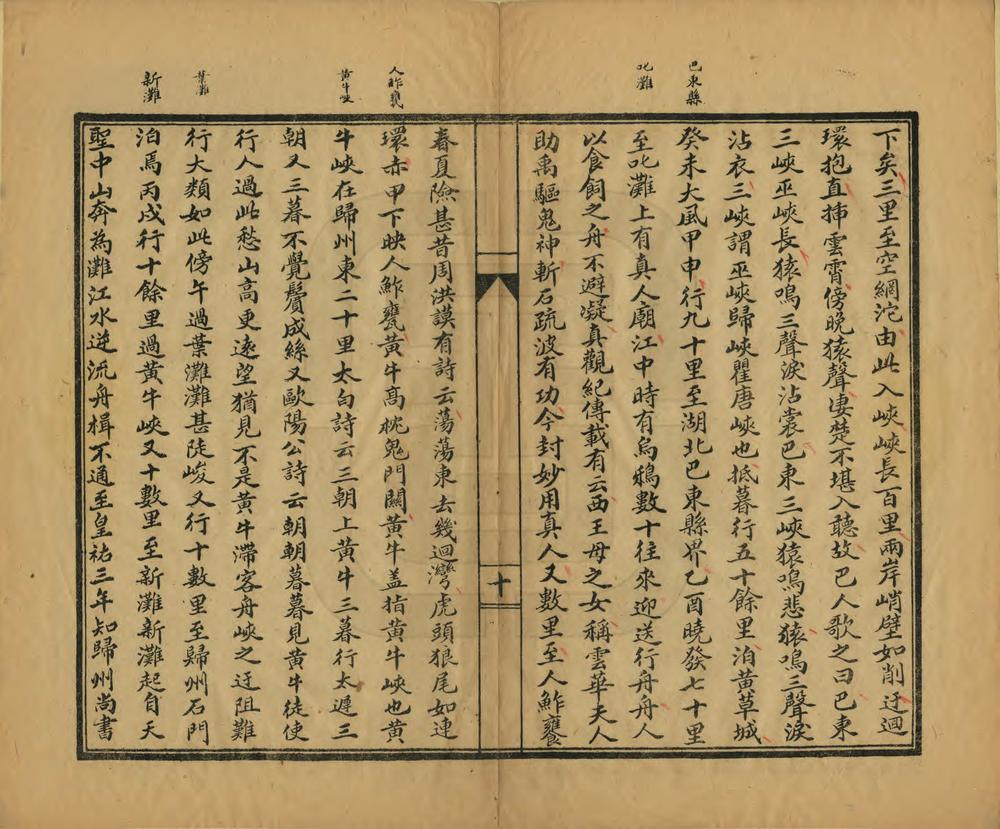 巴東縣
叱灘
人鮓甕
黃牛峽
葉灘
新灘
下矣三里至空綱沱由此入峽峽長百里兩岸峭壁如削迂迴
環抱直揷雲霄傍晚猿聲凄楚不堪入聽故巴人歌之曰巴東
三峽巫峽長猿鳴三聲淚沾裳巴東三峽猿鳴悲猿鳴三聲淚
沾衣三峽謂巫峽歸峽瞿唐峽也抵暮行五十餘里泊黃草城
癸未大風甲申行九十里至湖北巴東縣界乙酉曉發七十里
至叱灘上有真人廟江中時有烏鴉數十往來迎送行舟舟人
以食飼之舟不避凝真觀紀傳載有云西王母之女稱雲華夫人
助禹驅鬼神斬石疏波有功今封妙用真人又數里至人鮓甕
十
春夏險甚昔周洪謨有詩云蕩蕩東去幾迴灣虎頭狼尾如連
環赤甲下映人鮓甕黃牛高枕鬼門關黃牛盖指黃牛峽也黃
牛峽在歸州東二十里太白詩云三朝上黃牛三暮行太遲三
朝又三暮不覺鬢成絲又歐陽公詩云朝朝暮暮見黃牛徒使
行人過此愁山高更遠望猶見不是黃牛滯客舟峽之迂阻難
行大類如此傍午過葉灘灘甚陡峻又行十數里至歸州石門
泊焉丙戌行十餘里過黃牛峽又十數里至新灘新灘起自天
聖中山奔為灘江水逆流舟楫不通至皇祐三年知歸州尚書